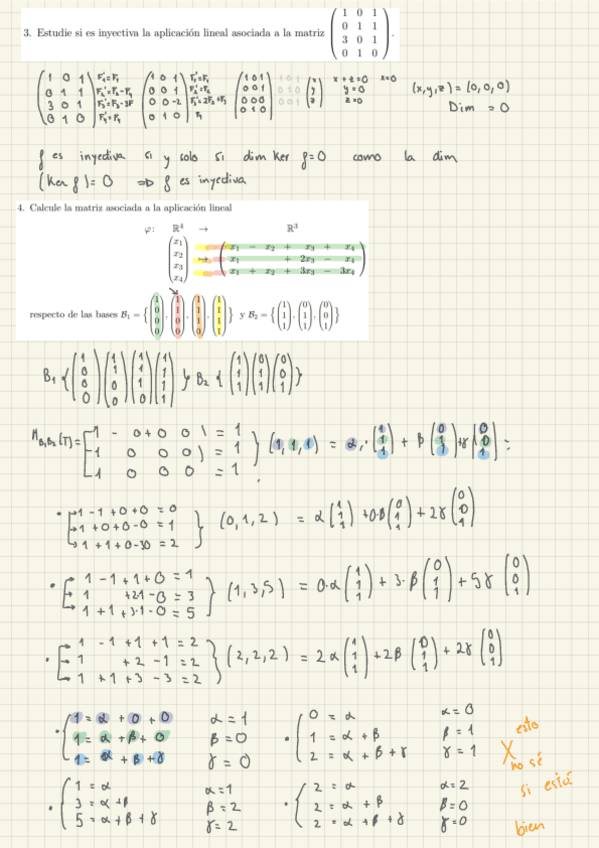 3. Estudie si es inyectiva la aplicación lineal asociada a la matriz (1 0 1 / 0 1 1 / 3 0 1 / 0 1 0).
(1 0 1 / 0 1 1 / 3 0 1 / 0 1 0) F₁'=F₁ F₂'=F₂-F₄ F₃'=F₃-3F F₄'=F₄ (1 0 1 / 0 0 1 / 0 0 -2 / 0 1 0) F₁'=F₁ F₂'=F₂ F₃'=2F₂+F₃ F₄ (1 0 1 / 0 0 1 / 0 0 0 / 0 1 0) 1 0 1 / 0 1 0 / 0 0 1 (x y z) x + z=0 y=0 z=0 x=0 (x,y,z) = (0,0,0)
Dim = 0
f es inyectiva si y solo si dim Ker f=0 como la dim
(Ker f)= 0 ⇒ f es inyectiva
4. Calcule la matriz asociada a la aplicación lineal
φ: ℝ⁴ → ℝ³
(x₁ x₂ x₃ x₄) ↦ (x₁ − x₂ + x₃ + x₄ / x₁ + 2x₃ − x₄ / x₁ + x₂ + 3x₃ − 3x₄)
respecto de las bases B₁ = {(1 0 0 0), (1 1 0 0), (1 1 1 0), (1 1 1 1)} y B₂ = {(1 1 1), (0 1 1), (0 0 1)}
B₁ {(1 0 0 0) (1 1 0 0) (1 1 1 0) (1 1 1 1)} y B₂ {(1 1 1) (0 1 1) (0 0 1)}
M_B₁B₂ (T) = 1 - 0+0 0 ) = 1
1 0 0 0) = 1 } (1,1,1) = α·(1 1 1) + β (0 1 1) + γ (0 0 1) =
1 0 0 0 = 1
• 1 -1 +0+0 = 0
1 +0+0-0 = 1 } (0,1,2) = α (1 1 1) + 0·β (0 1 1) + 2γ (0 0 1)
1 +1+0-30 = 2
• 1 -1 +1+0 = 1
1 +2·1 -0 = 3 } (1,3,5) = 0·α (1 1 1) + 3·β (0 1 1) + 5γ (0 0 1)
1 +1 +3·1 -0 = 5
• 1 -1 +1 +1 = 2
1 +2 -1 = 2 } (2,2,2) = 2α (1 1 1) + 2β (0 1 1) + 2γ (0 0 1)
1 +1 +3 -3 = 2
• { 1 = α + 0 + 0 α = 1
1 = α + β + 0 β = 0
1 = α + β + γ γ = 0
• { 0 = α α = 0
1 = α + β β = 1
2 = α + β + γ γ = 1
• { 1 = α α = 1
3 = α + β β = 2
5 = α + β + γ γ = 2
• { 2 = α α = 2
2 = α + β β = 0
2 = α + β + γ γ = 0
esto
X no sé
si está
bien